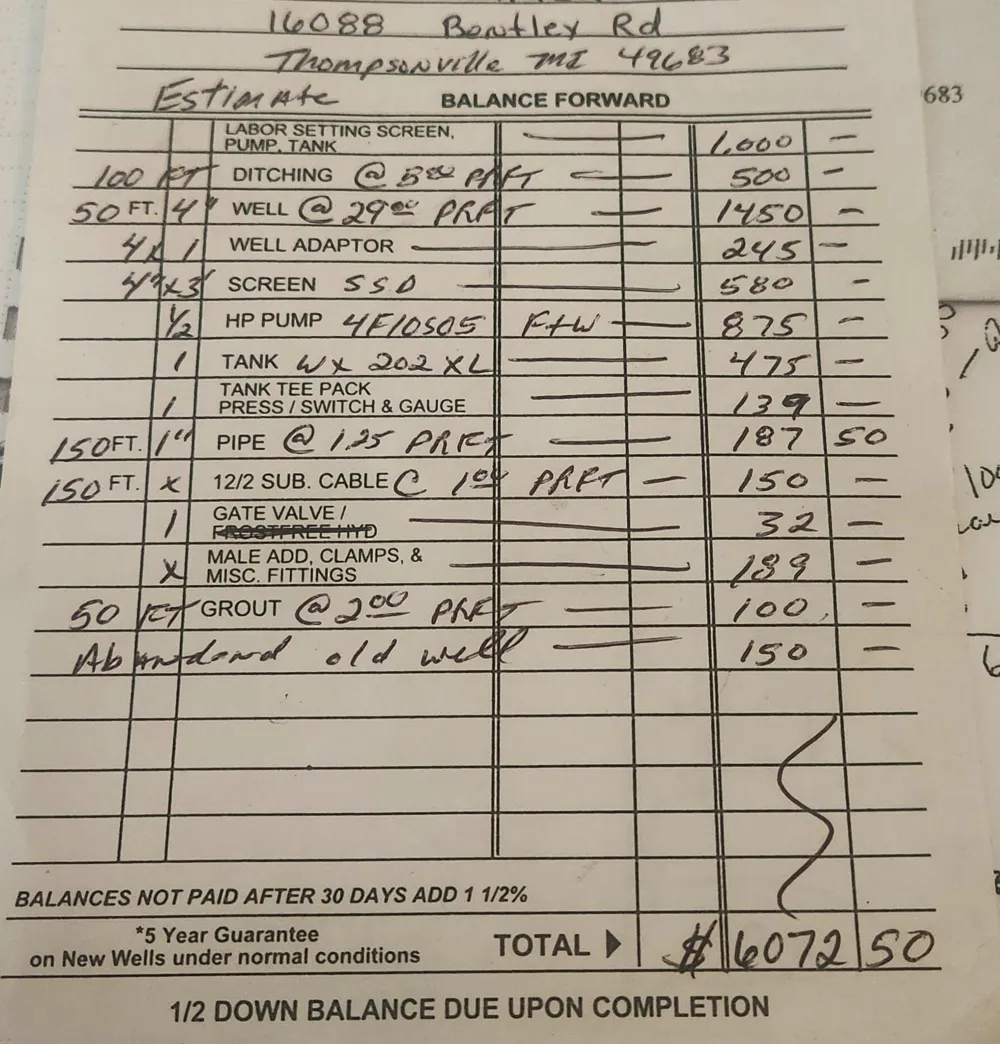 16088 Bentley Rd
Thompsonville MI 49683
Estimate BALANCE FORWARD
683
LABOR SETTING SCREEN,
PUMP, TANK 1,000 —
100 FT DITCHING @ 500 PRFT 500 —
50 FT. 4" WELL @ 2900 PRFT 1450 —
4x 1 WELL ADAPTOR 245 —
4"x3' SCREEN SSD 580 —
1/2 HP PUMP 4F10S05 F+W 875 —
1 TANK WX 202 XL 475 —
TANK TEE PACK
1 PRESS / SWITCH & GAUGE 139 —
150 FT. 1" PIPE @ 1.25 PRFT 187 50
150 FT. x 12/2 SUB. CABLE @ 100 PRFT 150 —
GATE VALVE /
1 FROSTFREE HYD 32 —
MALE ADD, CLAMPS, &
x MISC. FITTINGS 189 —
50 FT GROUT @ 2.00 PRFT 100 —
Abandond old well 150 —
BALANCES NOT PAID AFTER 30 DAYS ADD 1 1/2%
*5 Year Guarantee
on New Wells under normal conditions
TOTAL ▶ $ 6072 50
1/2 DOWN BALANCE DUE UPON COMPLETION